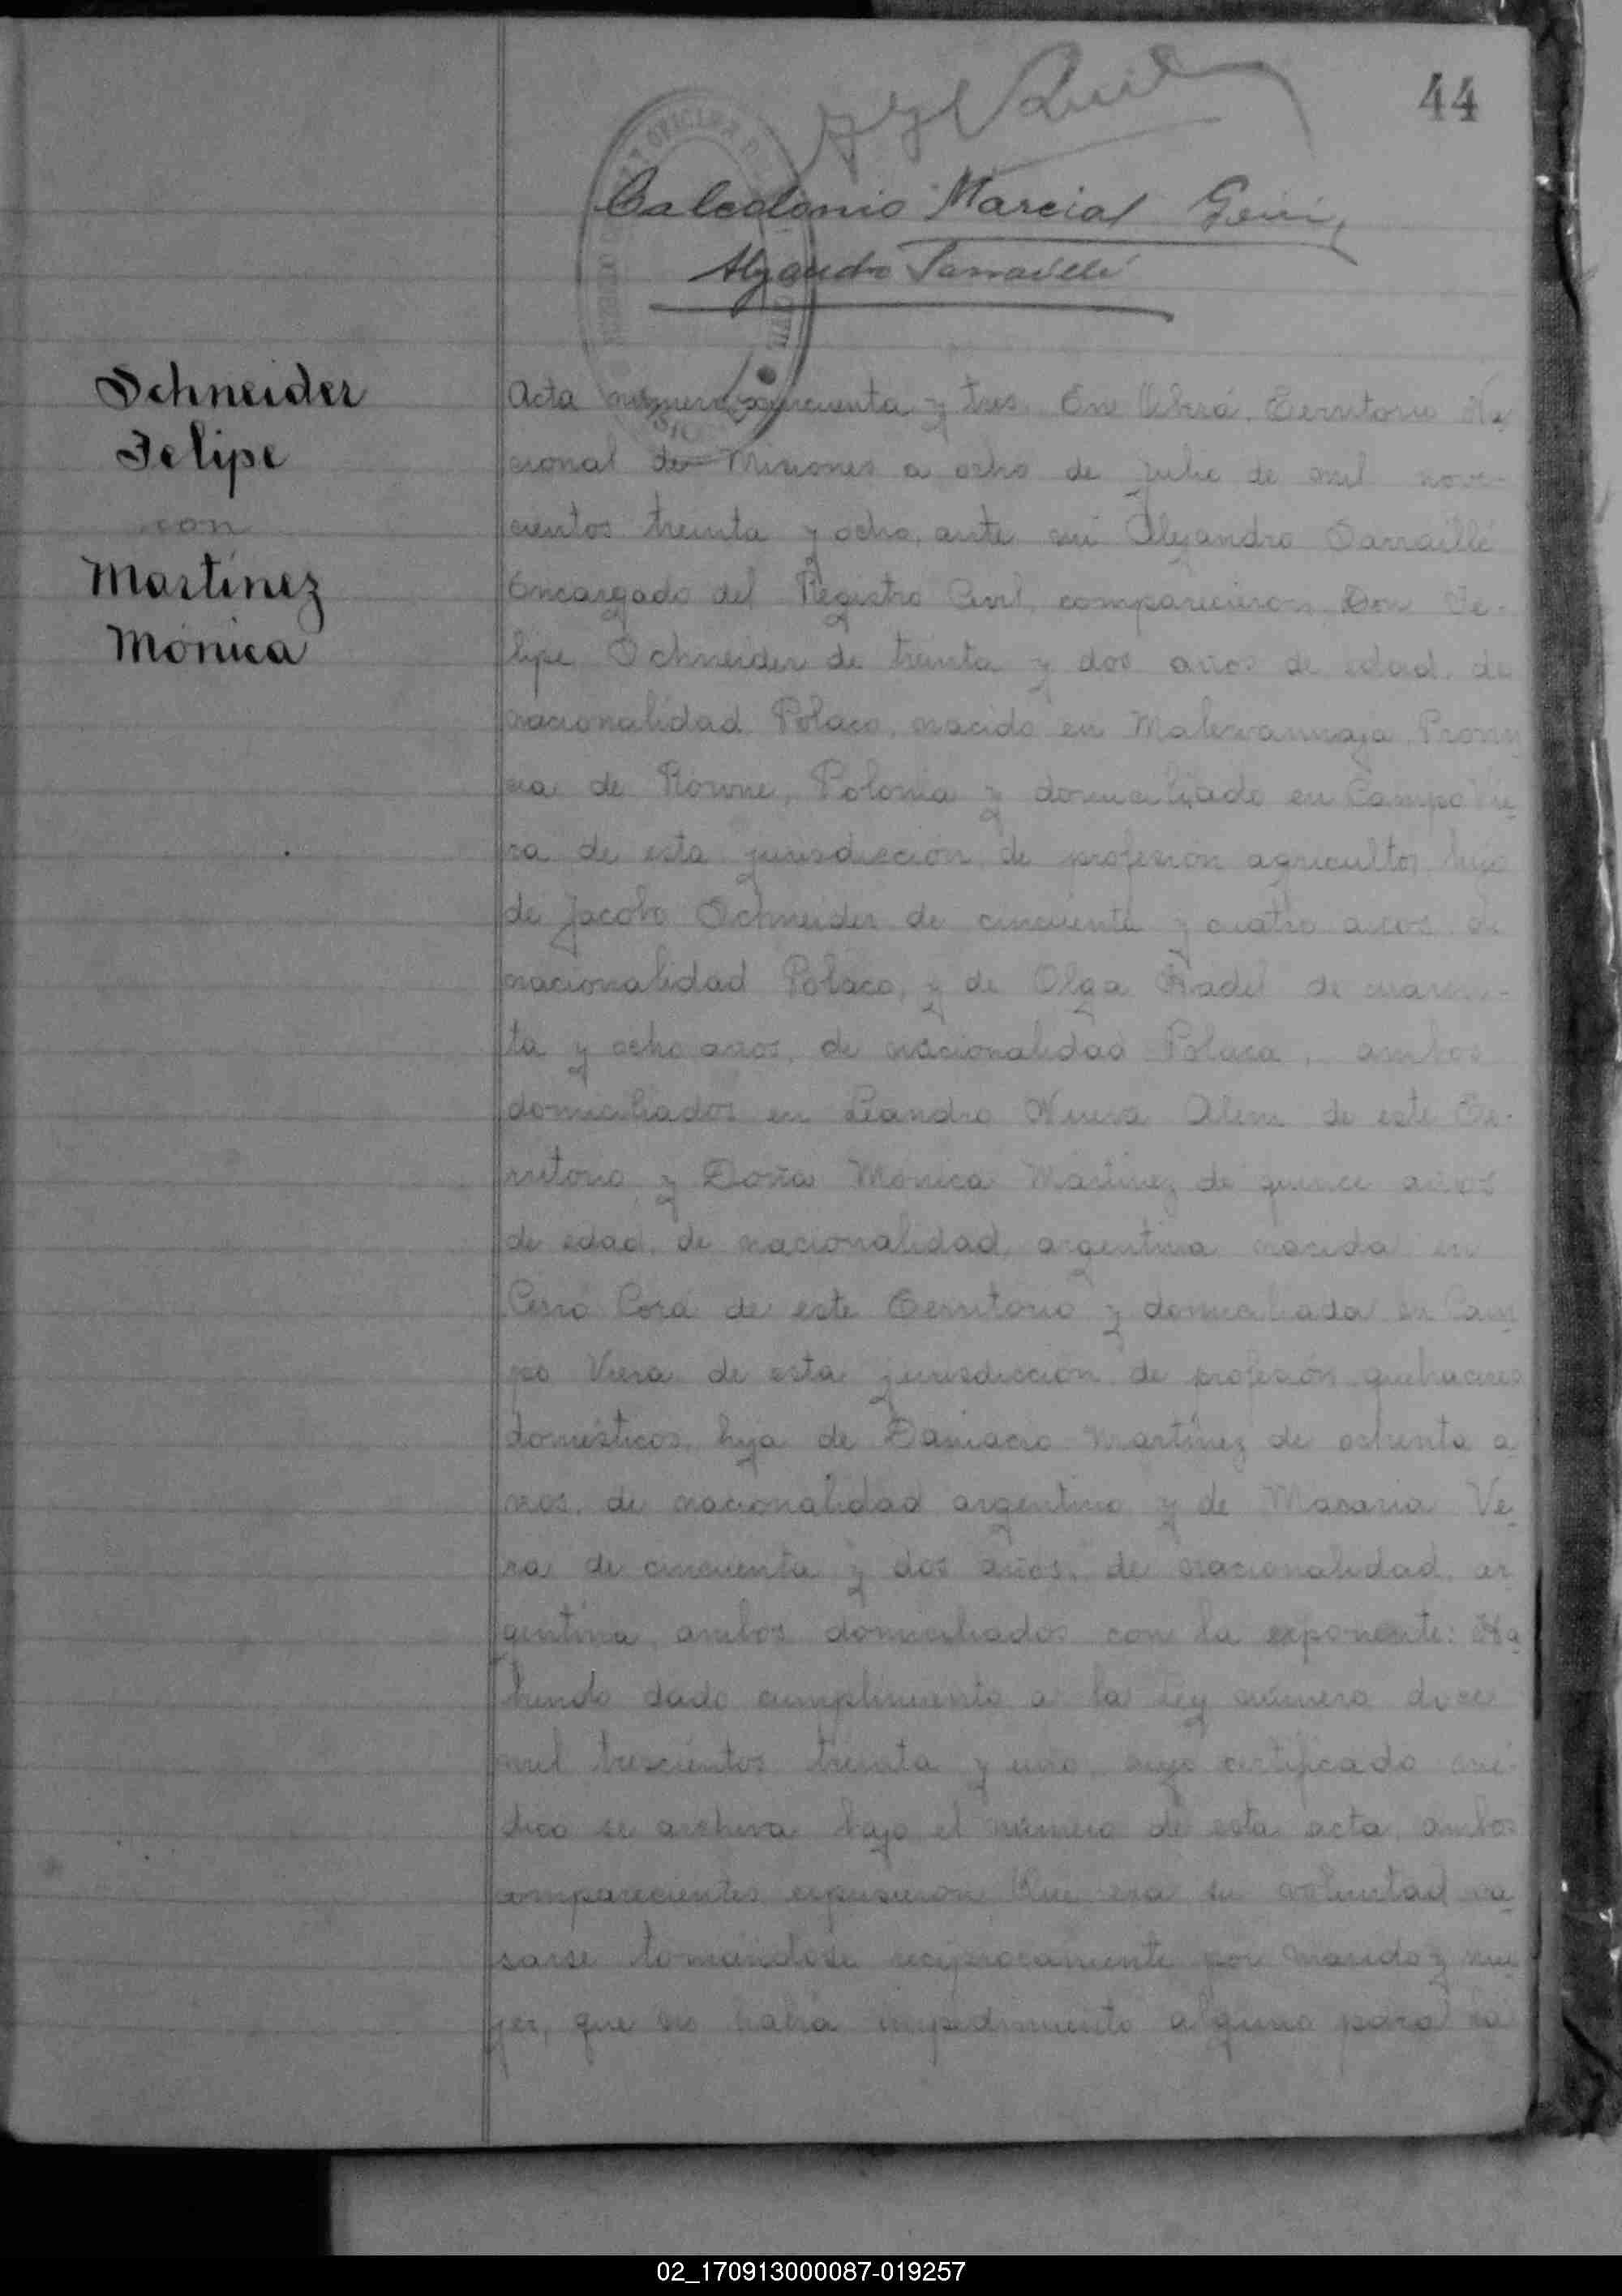 44
Marcial
Alejandro Sarraillé
Schneider
Felipe
con
Martínez
Mónica
Acta número cincuenta y tres. En Oberá, Territorio Na
cional de Misiones a ocho de julio de mil nove-
cientos treinta y ocho, ante mí Alejandro Sarraillé
Encargado del Registro Civil, comparecieron Don Fe-
lipe Schneider de treinta y dos años de edad, de
nacionalidad Polaco, nacido en Provin
cia de Rowne, Polonia y domiciliado en Campo Vie
ra de esta jurisdicción, de profesión agricultor, hijo
de Jacobo Schneider de cincuenta y cuatro años de
nacionalidad Polaco, y de Olga Radel de cuaren-
ta y ocho años, de nacionalidad Polaca, ambos
domiciliados en Leandro Nicera Alem de este Te-
rritorio, y Doña Mónica Martínez de quince años
de edad, de nacionalidad argentina nacida en
Cerro Corá de este Territorio y domiciliada en Cam
po Viera de esta jurisdicción de profesión quehaceres
domésticos, hija de Martínez de ochenta a
ños, de nacionalidad argentino y de Ve
ra de cincuenta y dos años, de nacionalidad ar
gentina, ambos domiciliados con la exponente: Ha
biendo dado cumplimiento a la Ley número doce
mil trescientos treinta y uno, cuyo certificado mé-
dico se archiva bajo el número de esta acta, ambos
comparecientes expusieron Que era su voluntad ca
sarse tomándose recíprocamente por marido y mu
jer, que no había impedimento alguno para la
02_170913000087-019257